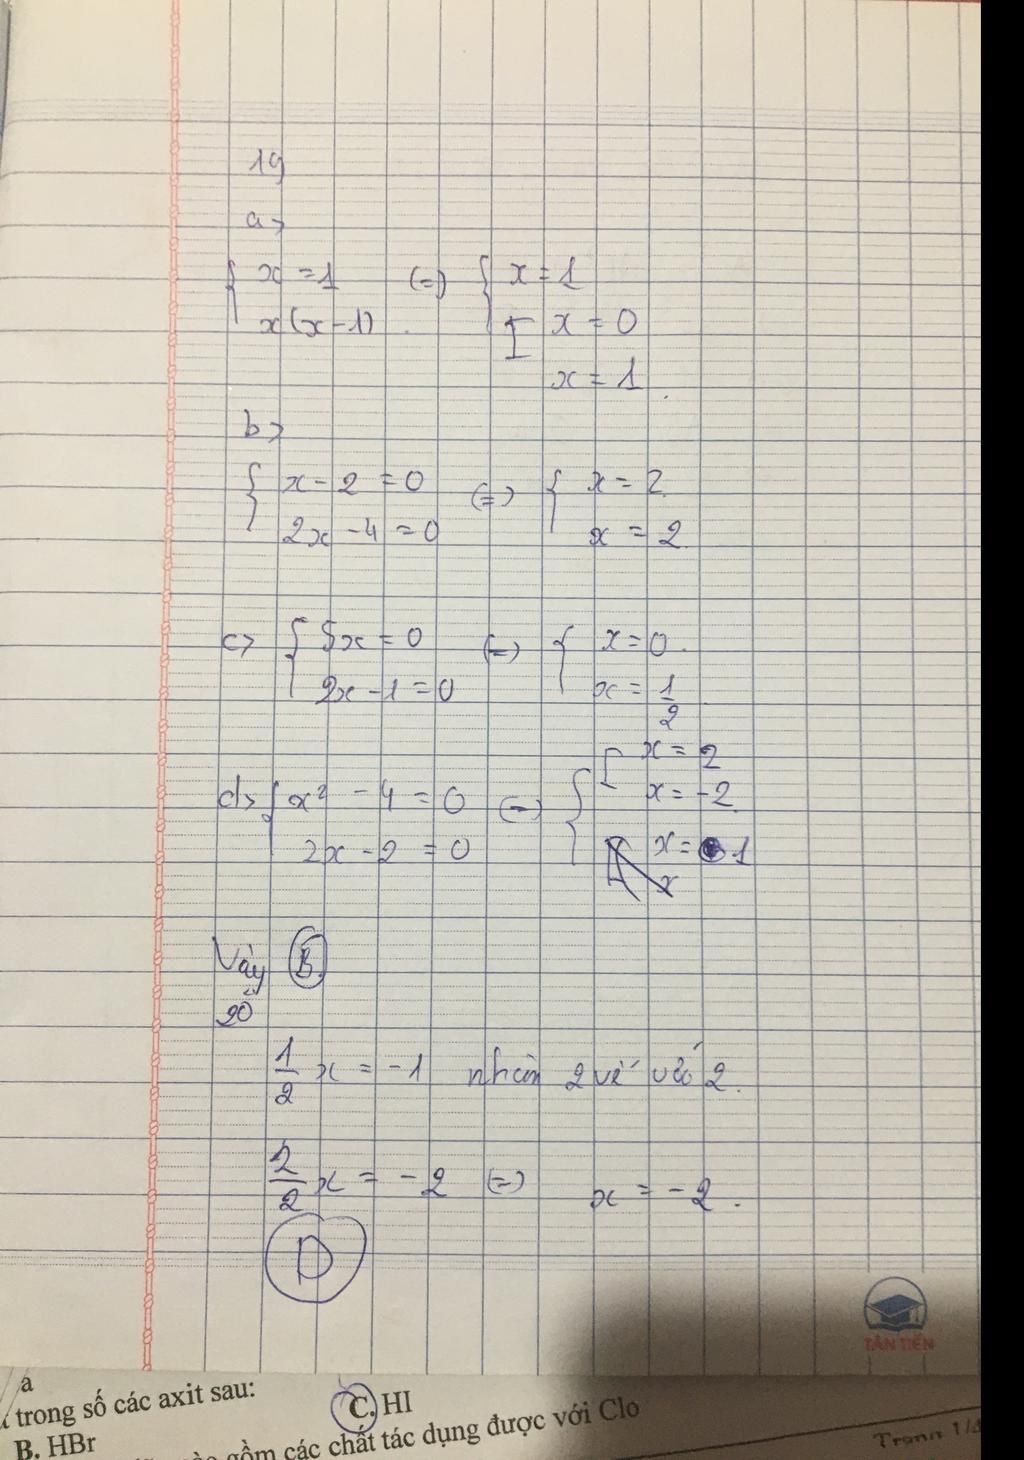 19
a>
{ x = 1 (=) { x = 1
x(x-1) [ x = 0
x = 1
b>
{ x - 2 = 0 (=) { x = 2
2x - 4 = 0 x = 2
c> { 5x = 0 (=) { x = 0.
2x - 1 = 0 x = 1/2
[ x = 2
d> { x² - 4 = 0 (=) { x = -2
2x - 2 = 0 x = 1
x
Vậy B.
20
1/2 x = -1 nhân 2 vế với 2.
2/2 x = -2 (=) x = -2.
D
TÂN TIẾN
a
trong số các axit sau:
B. HBr C. HI
gồm các chất tác dụng được với Clo
Trang 1/4